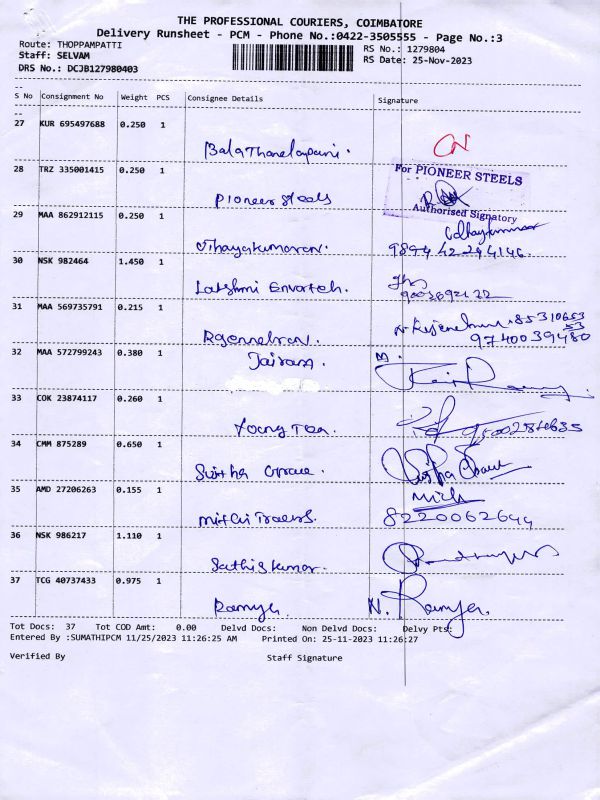 THE PROFESSIONAL COURIERS, COIMBATORE
Delivery Runsheet - PCM - Phone No.:0422-3505555 - Page No.:3
Route: THOPPAMPATTI RS No.: 1279804
Staff: SELVAM RS Date: 25-Nov-2023
DRS No.: DCJB127980403
S No Consignment No Weight PCS Consignee Details Signature
27 KUR 695497688 0.250 1
CN
28 TRZ 335001415 0.250 1
For PIONEER STEELS
Pioneer Steels
Authorised Signatory
29 MAA 862912115 0.250 1
Vijayakumaran.
30 NSK 982464 1.450 1
Lakshmi
31 MAA 569735791 0.215 1
9740039480
32 MAA 572799243 0.380 1
Jairam.
33 COK 23874117 0.260 1
Young Tea.
34 CMM 875289 0.650 1
35 AMD 27206263 0.155 1
8220062644
36 NSK 986217 1.110 1
Sathiskumar.
37 TCG 40737433 0.975 1
Ramya. N. Ramya.
Tot Docs: 37 Tot COD Amt: 0.00 Delvd Docs: Non Delvd Docs: Delvy Pts:
Entered By :SUMATHIPCM 11/25/2023 11:26:25 AM Printed On: 25-11-2023 11:26:27
Verified By Staff Signature